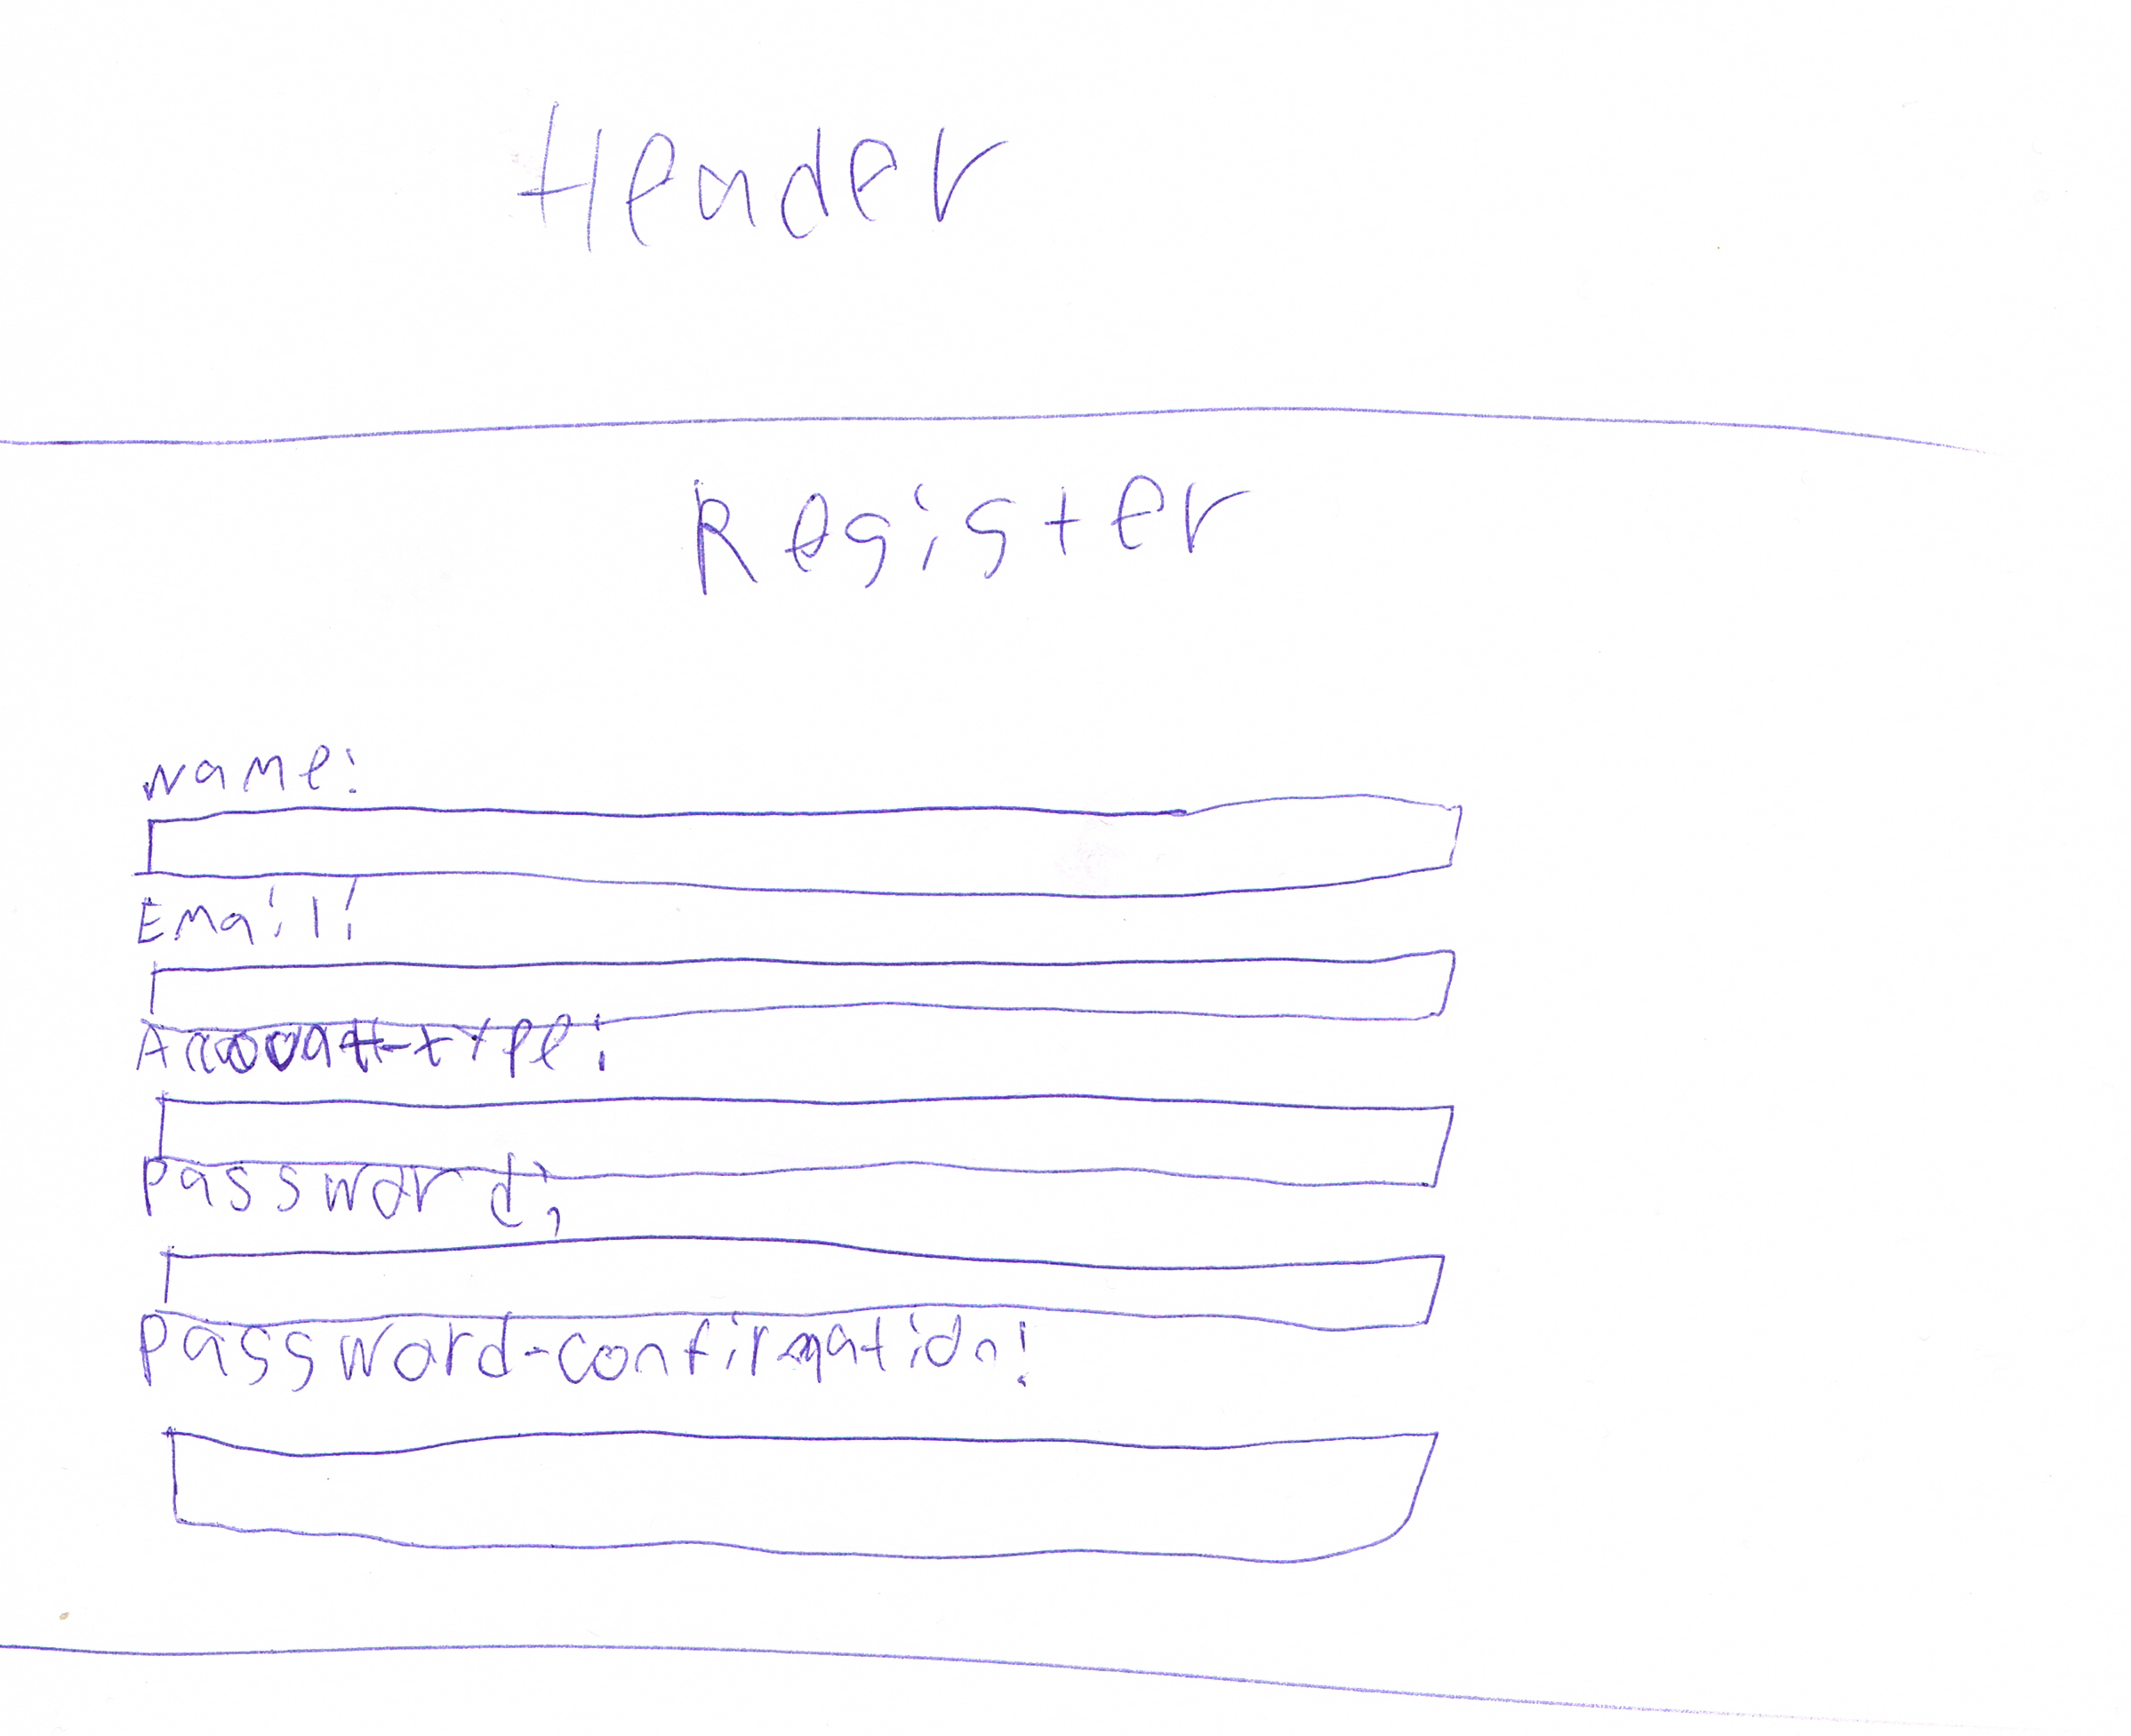 Header
Register
name:
Email:
Account-type:
Password:
Password-confirmation: